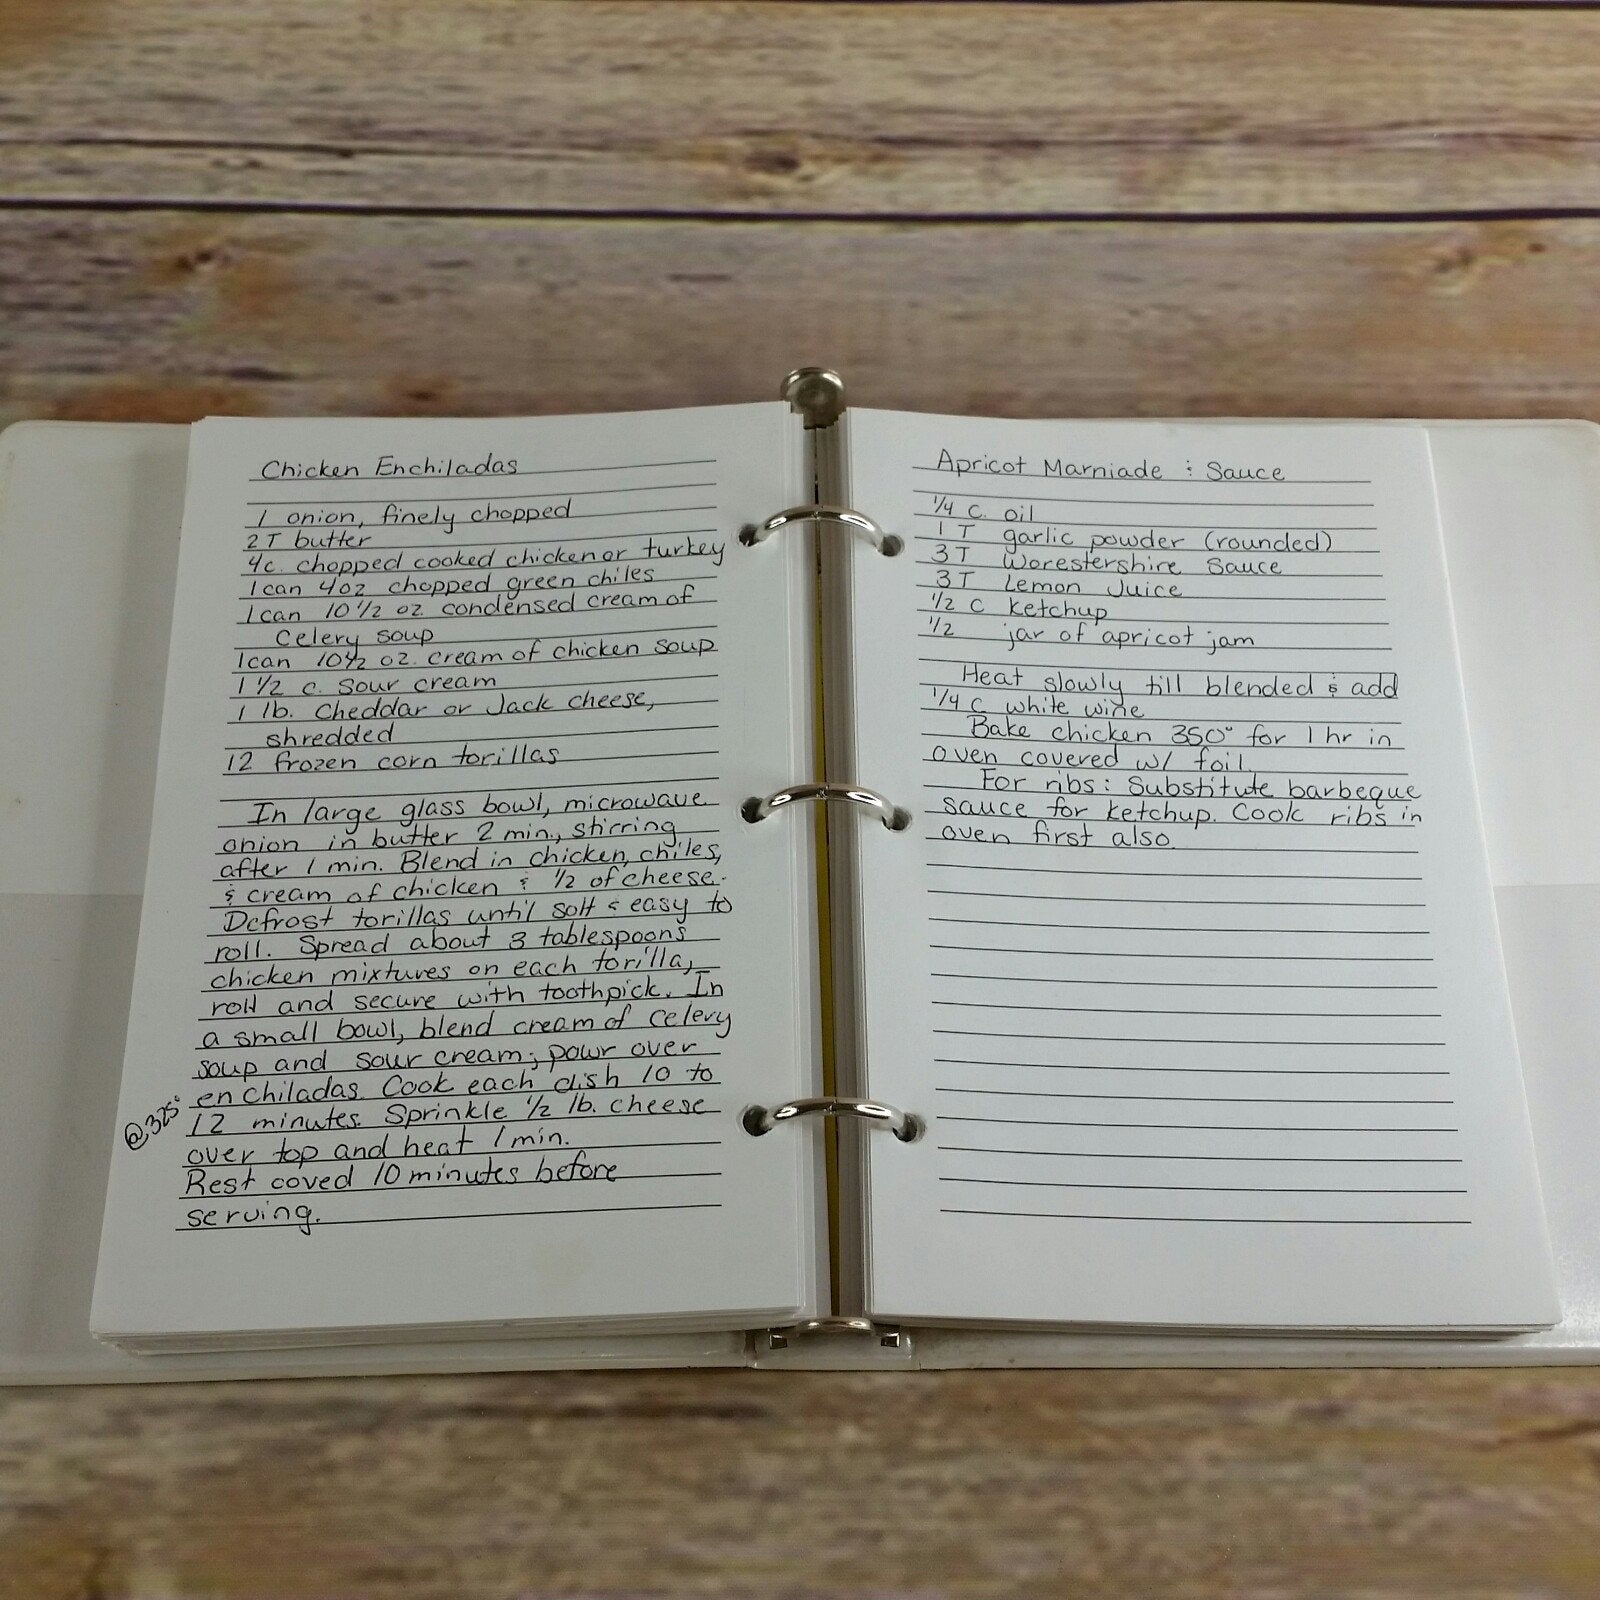 Chicken Enchiladas
1 onion, finely chopped
2T butter
4c. chopped cooked chicken or turkey
1 can 4oz chopped green chiles
1 can 10 1/2 oz. condensed cream of
Celery soup
1 can 10 1/2 oz. cream of chicken soup
1 1/2 c. sour cream
1 lb. Cheddar or Jack cheese,
shredded
12 frozen corn torillas
In large glass bowl, microwave
onion in butter 2 min., stirring
after 1 min. Blend in chicken, chiles,
& cream of chicken & 1/2 of cheese.
Defrost torillas until soft & easy to
roll. Spread about 3 tablespoons
chicken mixtures on each torilla,
roll and secure with toothpick. In
a small bowl, blend cream of celery
soup and sour cream; pour over
enchiladas. Cook each dish 10 to
@325° 12 minutes. Sprinkle 1/2 lb. cheese
over top and heat 1 min.
Rest coved 10 minutes before
serving.
Apricot Marniade & Sauce
1/4 C. oil
1 T garlic powder (rounded)
3T Worestershire Sauce
3T Lemon Juice
1/2 C ketchup
1/2 jar of apricot jam
Heat slowly till blended & add
1/4 C white wine
Bake chicken 350° for 1 hr in
oven covered w/ foil.
For ribs: Substitute barbeque
sauce for ketchup. Cook ribs in
oven first also.